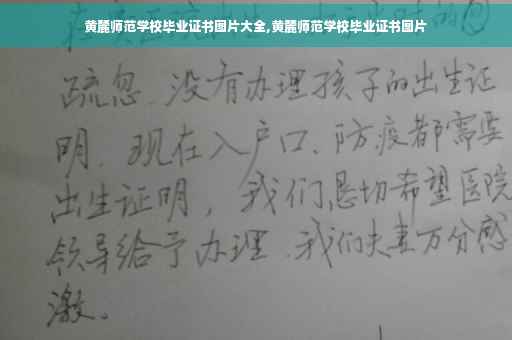 黄麓师范学校毕业证书图片大全,黄麓师范学校毕业证书图片
疏忽、没有办理孩子的出生证
明、现在入户口、防疫都需要
出生证明,我们恳切希望医院
领导给予办理、我们夫妻万分感
激。